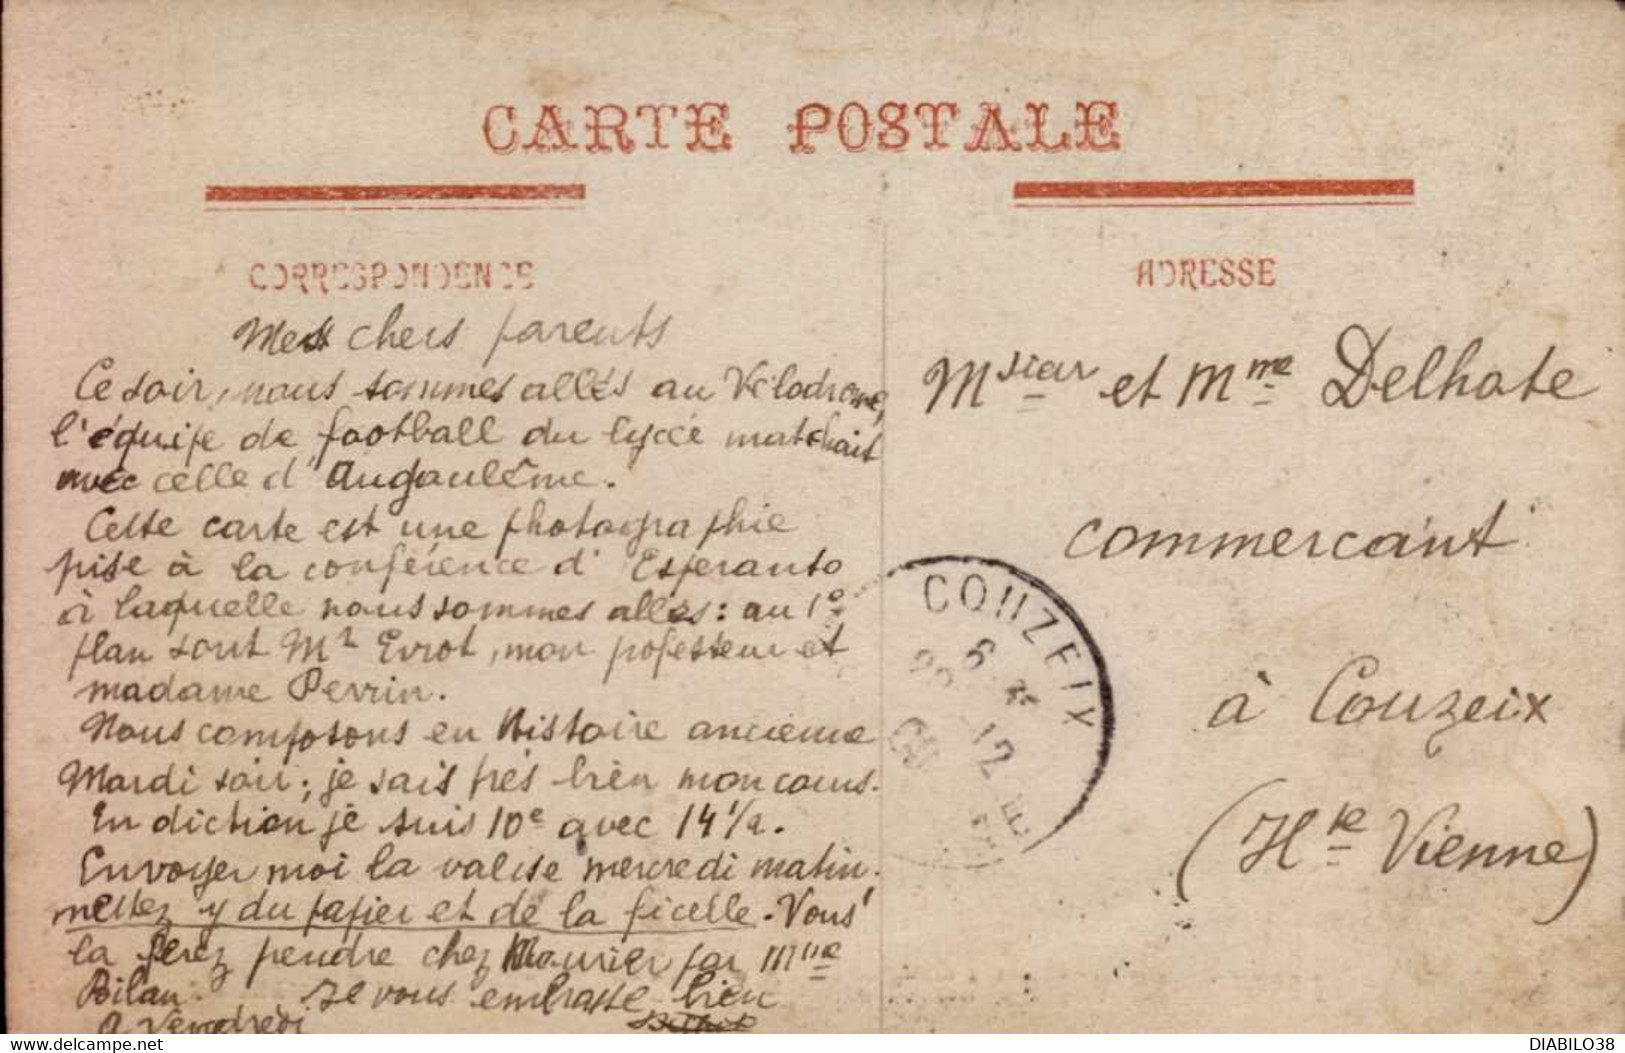 CARTE POSTALE
CORRESPONDENCE
Mes chers parents
Ce soir, nous sommes allés au Vélodrome,
l'équipe de football du lycée matchait
avec celle d'Augoulême.
Cette carte est une photographie
prise à la conférence d'Esperanto
à laquelle nous sommes allés: au 1e
plan sont Mr Evrot, mon professeur et
madame Perrin.
Nous composons en Histoire ancienne
Mardi soir; je sais très bien mon cours.
En diction je suis 10e avec 14 1/2.
Envoyer moi la valise mercredi matin.
mettez y du papier et de la ficelle. Vous
la ferez pendre chez Maurier par Mme
Bilan. Je vous embrasse bien
A Vendredi
ADRESSE
Msieur et Mme Delhote
commercant
à Couzeix
(Hte Vienne)
COUZEIX
12
DIABILO38